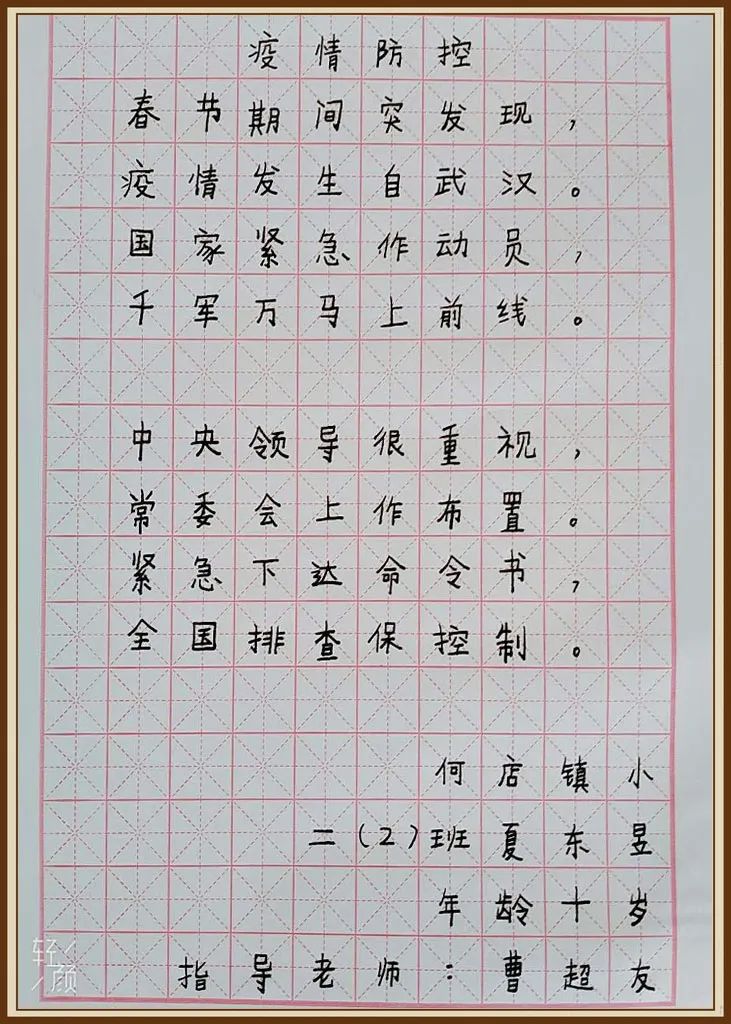 疫情防控
春节期间突发现，
疫情发生自武汉。
国家紧急作动员，
千军万马上前线。
中央领导很重视，
常委会上作布置。
紧急下达命令书，
全国排查保控制。
何店镇小
二（2）班夏东昱
年龄十岁
指导老师：曹超友
轻颜